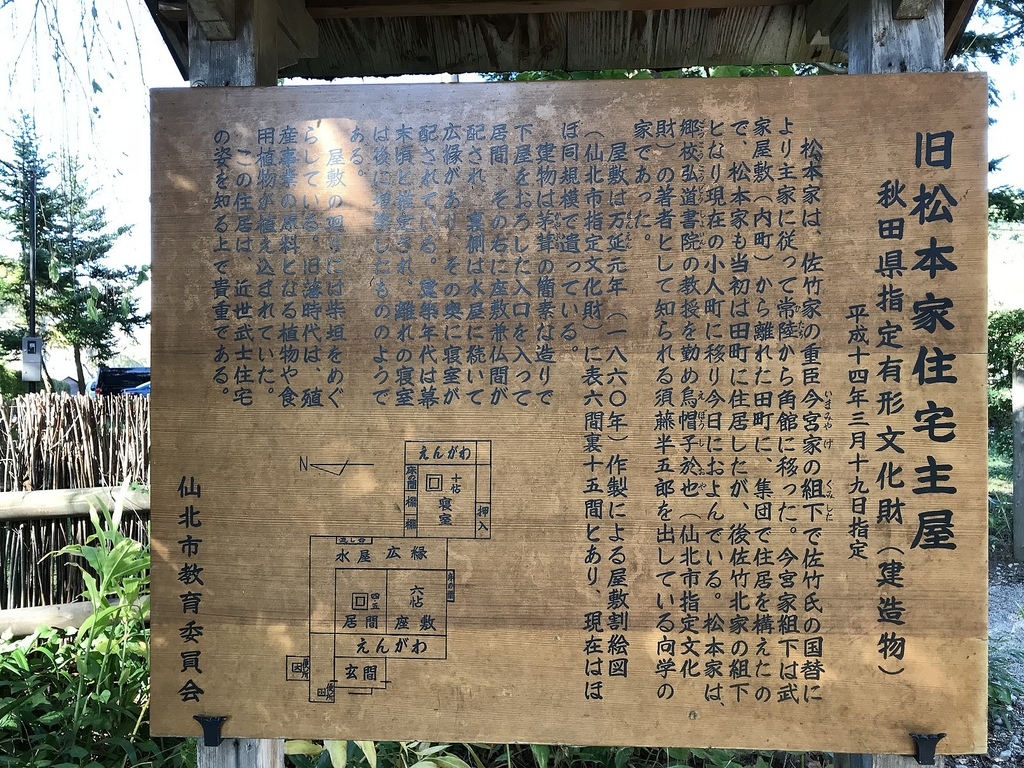 旧松本家住宅主屋
秋田県指定有形文化財（建造物）
平成十四年三月十九日指定
松本家は、佐竹家の重臣今宮家の組下で佐竹氏の国替に
より主家に従って常陸から角館に移った。今宮家組下は武
家屋敷（内町）から離れた田町に、集団で住居を構えたの
で、松本家も当初は田町に住居したが、後佐竹北家の組下
となり現在の小人町に移り今日におよんでいる。松本家は、
郷校弘道書院の教授を勤め烏帽子於也（仙北市指定文化
財）の著者として知られる須藤半五郎を出している向学の
家であった。
屋敷は万延元年（一八六〇年）作製による屋敷割絵図
（仙北市指定文化財）に表六間裏十五間とあり、現在はほ
ぼ同規模で遺っている。
建物は茅葺の簡素な造りで
下屋をおろした入口を入って
居間、その右に座敷兼仏間が
配され、裏側は水屋に続いて
広縁があり、その奥に寝室が
配されている。建築年代は幕
末頃と推定され、離れの寝室
は後に増築したもののようで
ある。
屋敷の廻りには柴垣をめぐ
らしている。旧藩時代は、殖
産事業の原料となる植物や食
用植物が植え込まれていた。
この住居は、近世武士住宅
の姿を知る上で貴重である。
仙北市教育委員会
N
えんがわ
床の間
棚
棚
十帖
寝室
押入
流し台
水屋
広縁
四五
居間
六帖
座敷
えんがわ
玄関